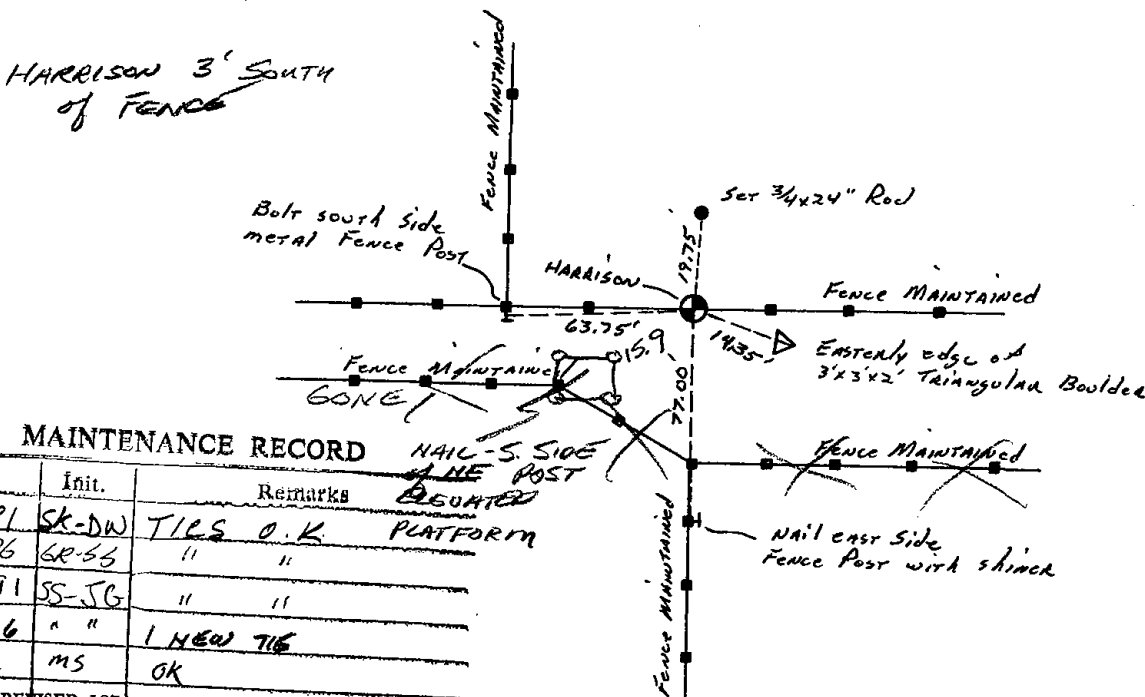 HARRISON 3' SOUTH
of FENCE
FENCE MAINTAINED
Set 3/4x24" Rod
Bolt south side
metal Fence Post
HARRISON
19.75'
Fence Maintained
63.75'
14.35'
Easterly edge of
3'x3'x2' Triangular Boulder
15.9
Fence Maintaine
GONE
77.00'
Fence Maintained
NAIL - S. SIDE
of NE POST
ELEVATED
PLATFORM
Nail east side
Fence Post with shiner
Fence Maintained
MAINTENANCE RECORD
Init. Remarks
SK-DW TIES O.K.
6R-SS " "
91 SS-JG " "
6 " " 1 NEW TIE
MS OK